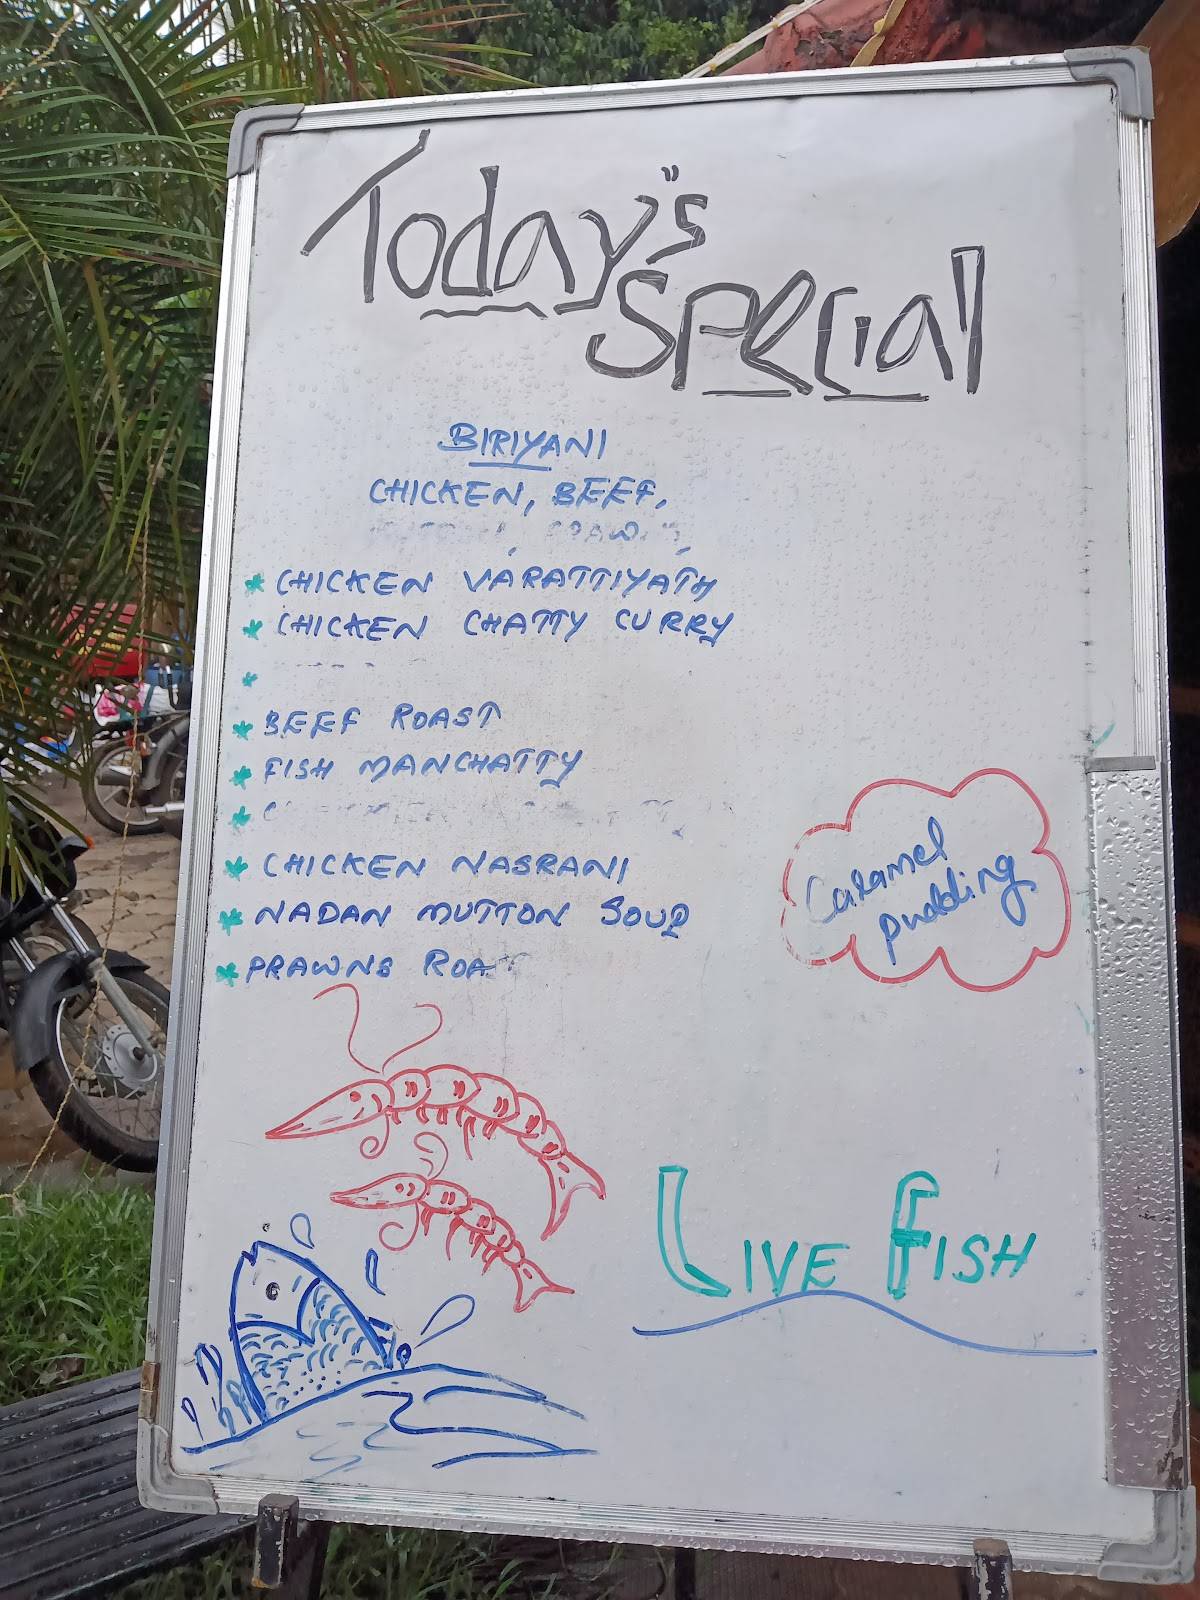 Today's
Special
BIRIYANI
CHICKEN, BEEF,
* CHICKEN VARATTIYATH
* CHICKEN CHATTY CURRY
*
* BEEF ROAST
* FISH MANCHATTY
*
* CHICKEN NASRANI
* NADAN MUTTON SOUP
* PRAWNS ROA
Caramel
pudding
LIVE FISH